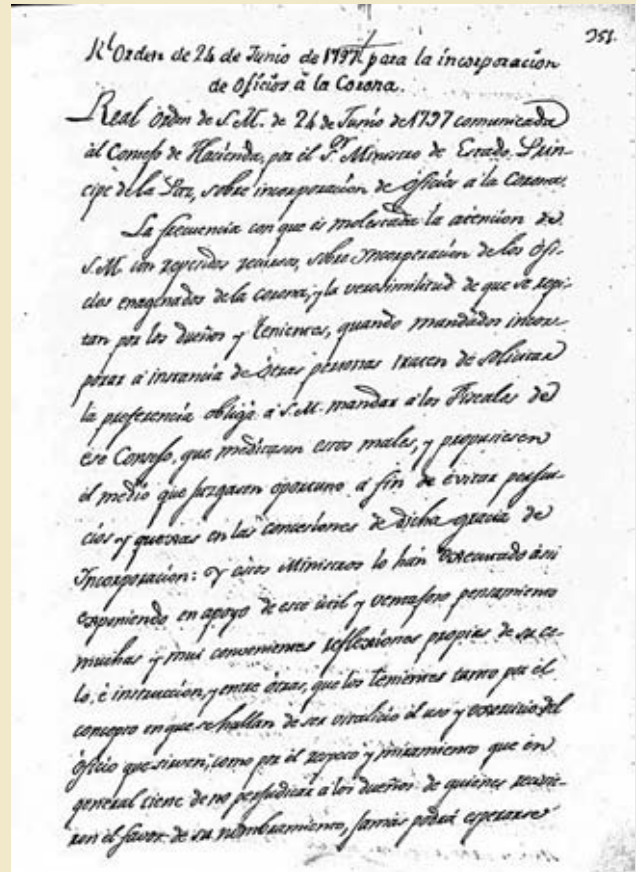 351.
Rl Orden de 24 de Junio de 1797 para la incorporacion
de Oficios à la Corona.
Real Orden de S.M. de 24 de Junio de 1797 comunicada
al Consejo de Hacienda, por el Sr Ministro de Estado Prin-
cipe de la Paz, sobre incorporacion de oficios a la Corona.
La frecuencia con que es molestada la atencion de
S.M. con repetidos recursos, sobre Yncorporacion de los Ofi-
cios enagenados de la corona, y la verosimilitud de que se repi-
tan por los dueños y tenientes, quando mandados incor-
porar a instancia de òtras personas traten de solicitar
la preferencia obligó a S.M. mandar a los Fiscales de
ese Consejo, que meditasen estos males, y propusiesen
el medio que juzgasen oportuno a fin de evitar perjui-
cios y quexas en las concesiones de dicha gracia de
Yncorporacion: Y estos Ministros lo han executado asi
exponiendo en apoyo de este util y ventajoso pensamiento
muchas y mui convenientes reflexiones propias de su ce-
lo, è instruccion, y entre òtras, que los tenientes tanto por el
concepto en que se hallan de ser vitalicio el uso y exercicio del
oficio que sirven, como por el respeto y miramiento que en
general tiene de no perjudicar a los dueños de quienes recivie-
ron el favor de su nombramiento, jamas podrá esperarse